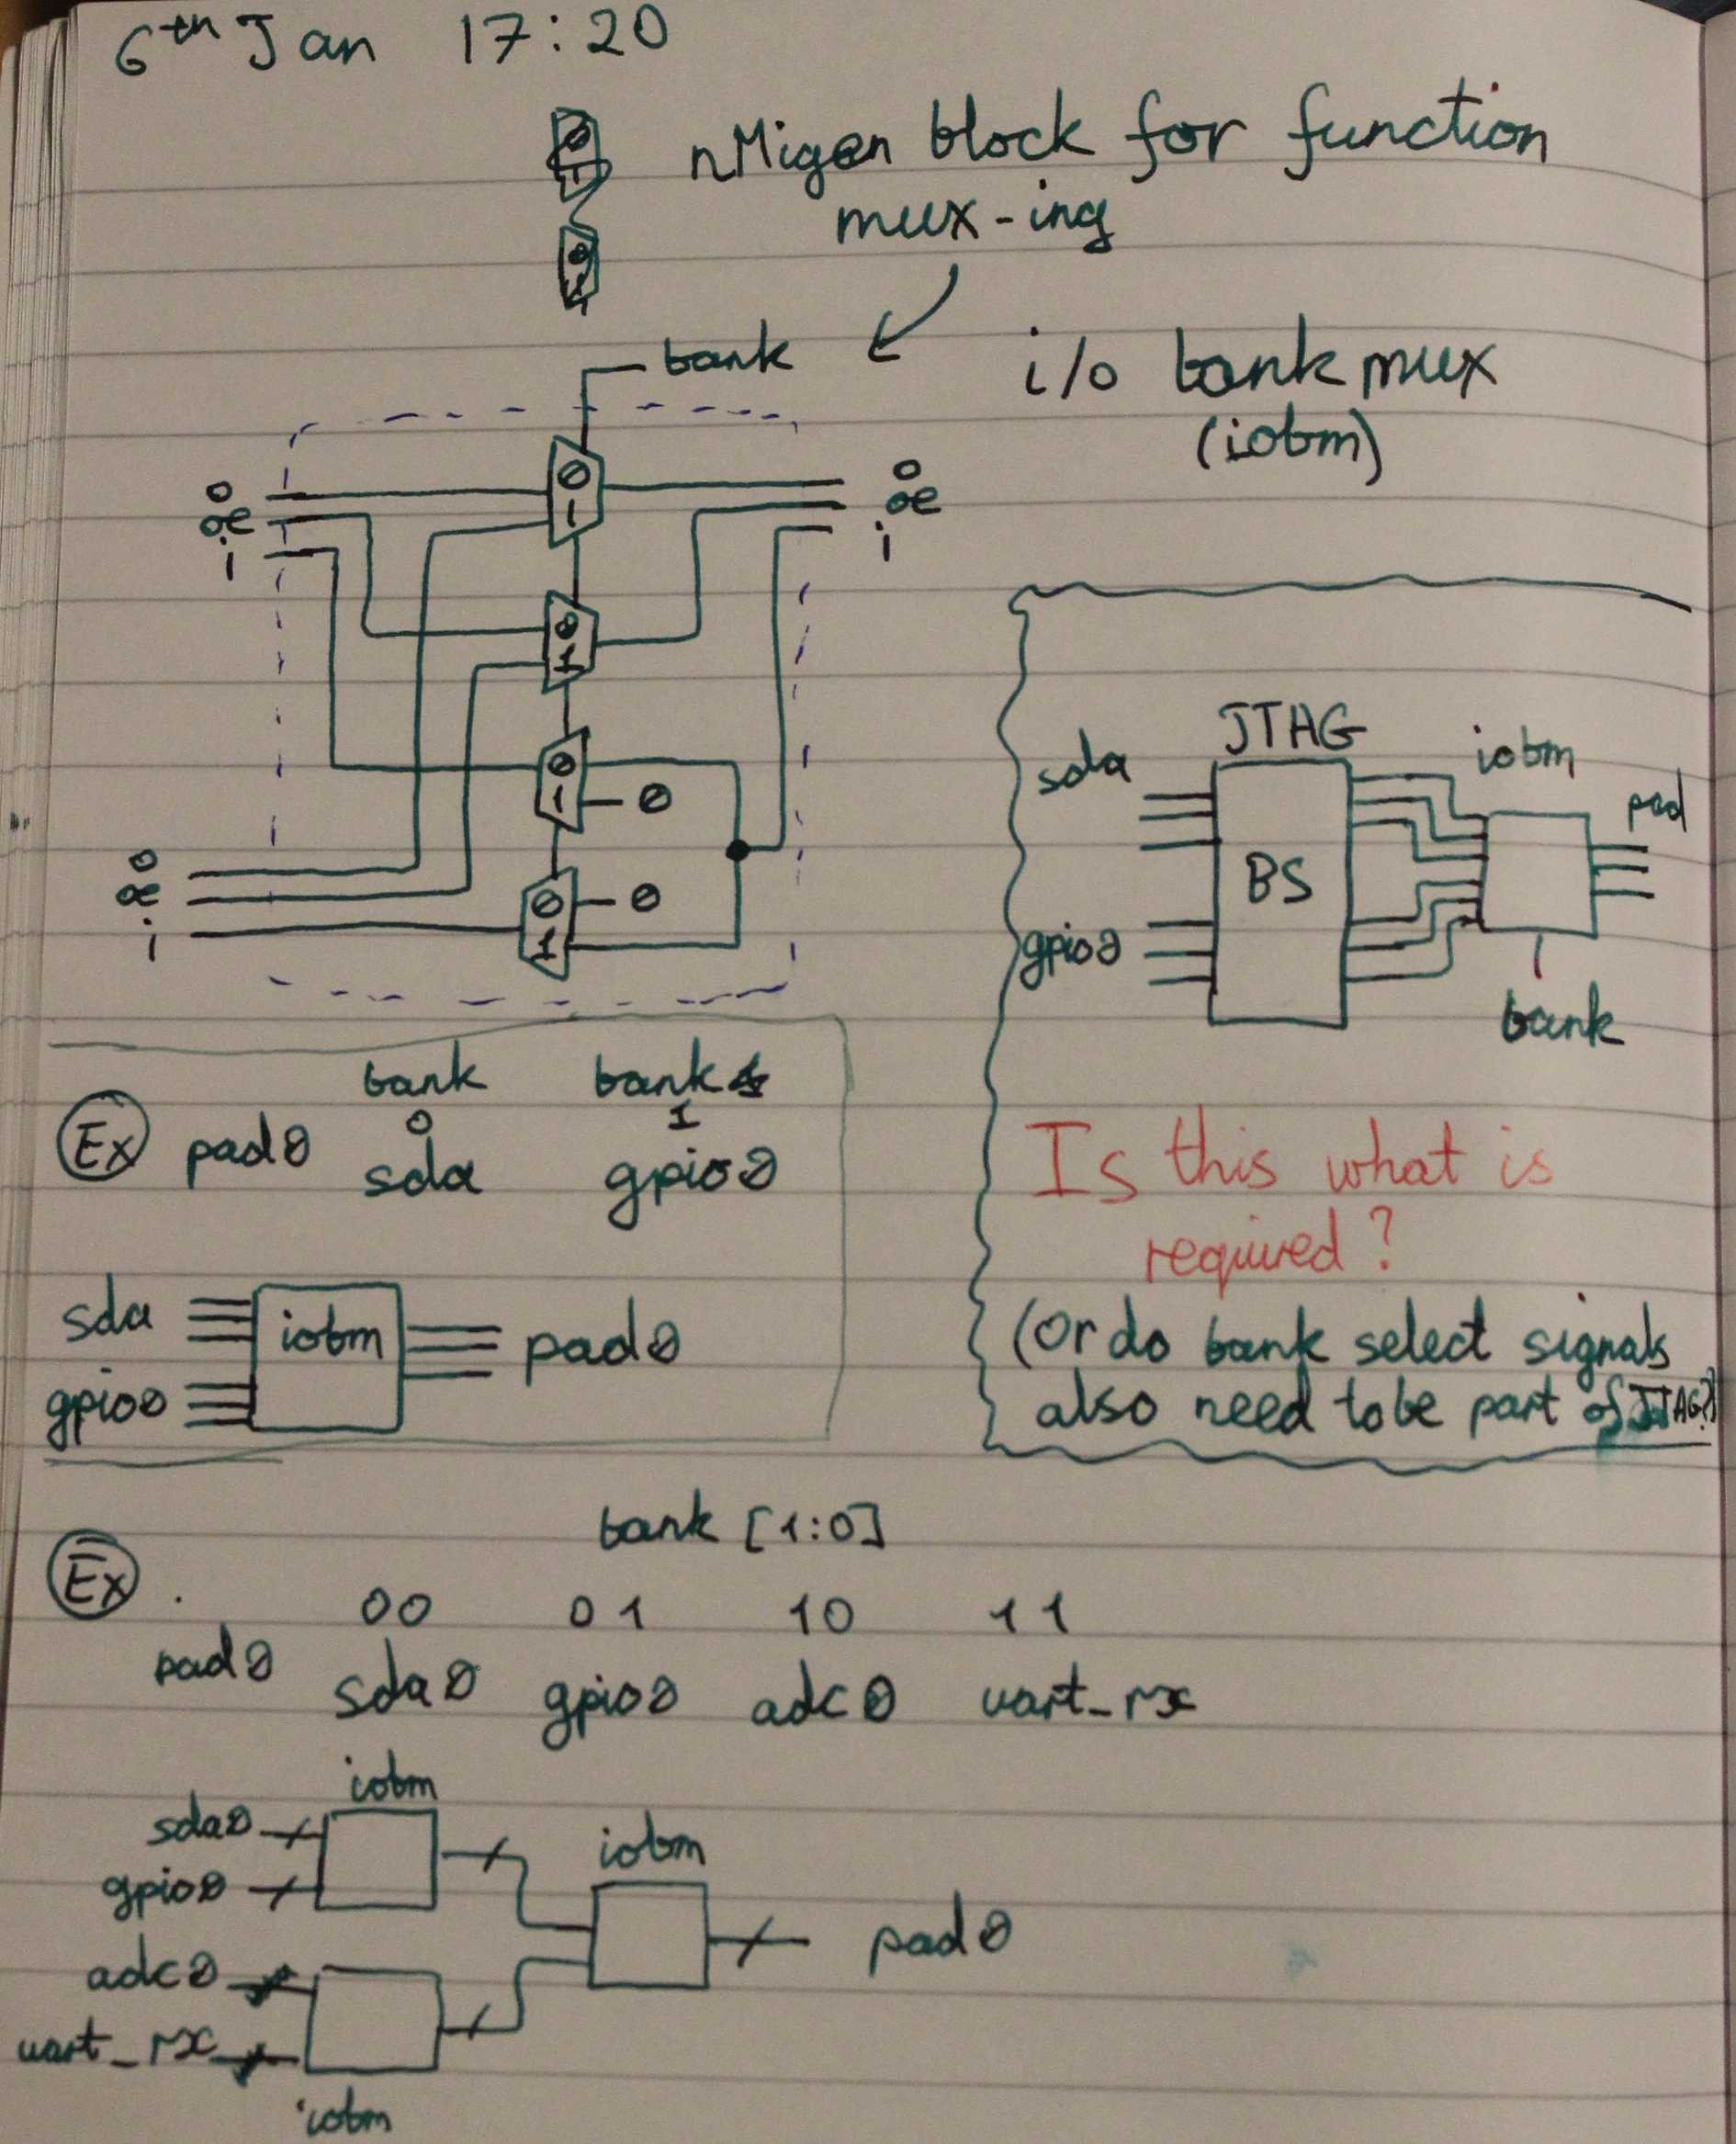 6th Jan 17:20
nMigen block for function
mux-ing
bank
i/o bank mux
(iobm)
o
oe
i
0
1
o
oe
i
0
1
0
1
0
o
oe
i
0
1
0
JTAG
sda
gpio0
BS
iobm
pad
bank
Is this what is
required?
(Or do bank select signals
also need to be part of JTAG?)
Ex
bank bank
0 1
pad0 sda gpio0
sda
gpio0
iobm
pad0
Ex
bank [1:0]
. 00 01 10 11
pad0 sda0 gpio0 adc0 uart_rx
iobm
sda0
gpio0
iobm
pad0
adc0
uart_rx
iobm